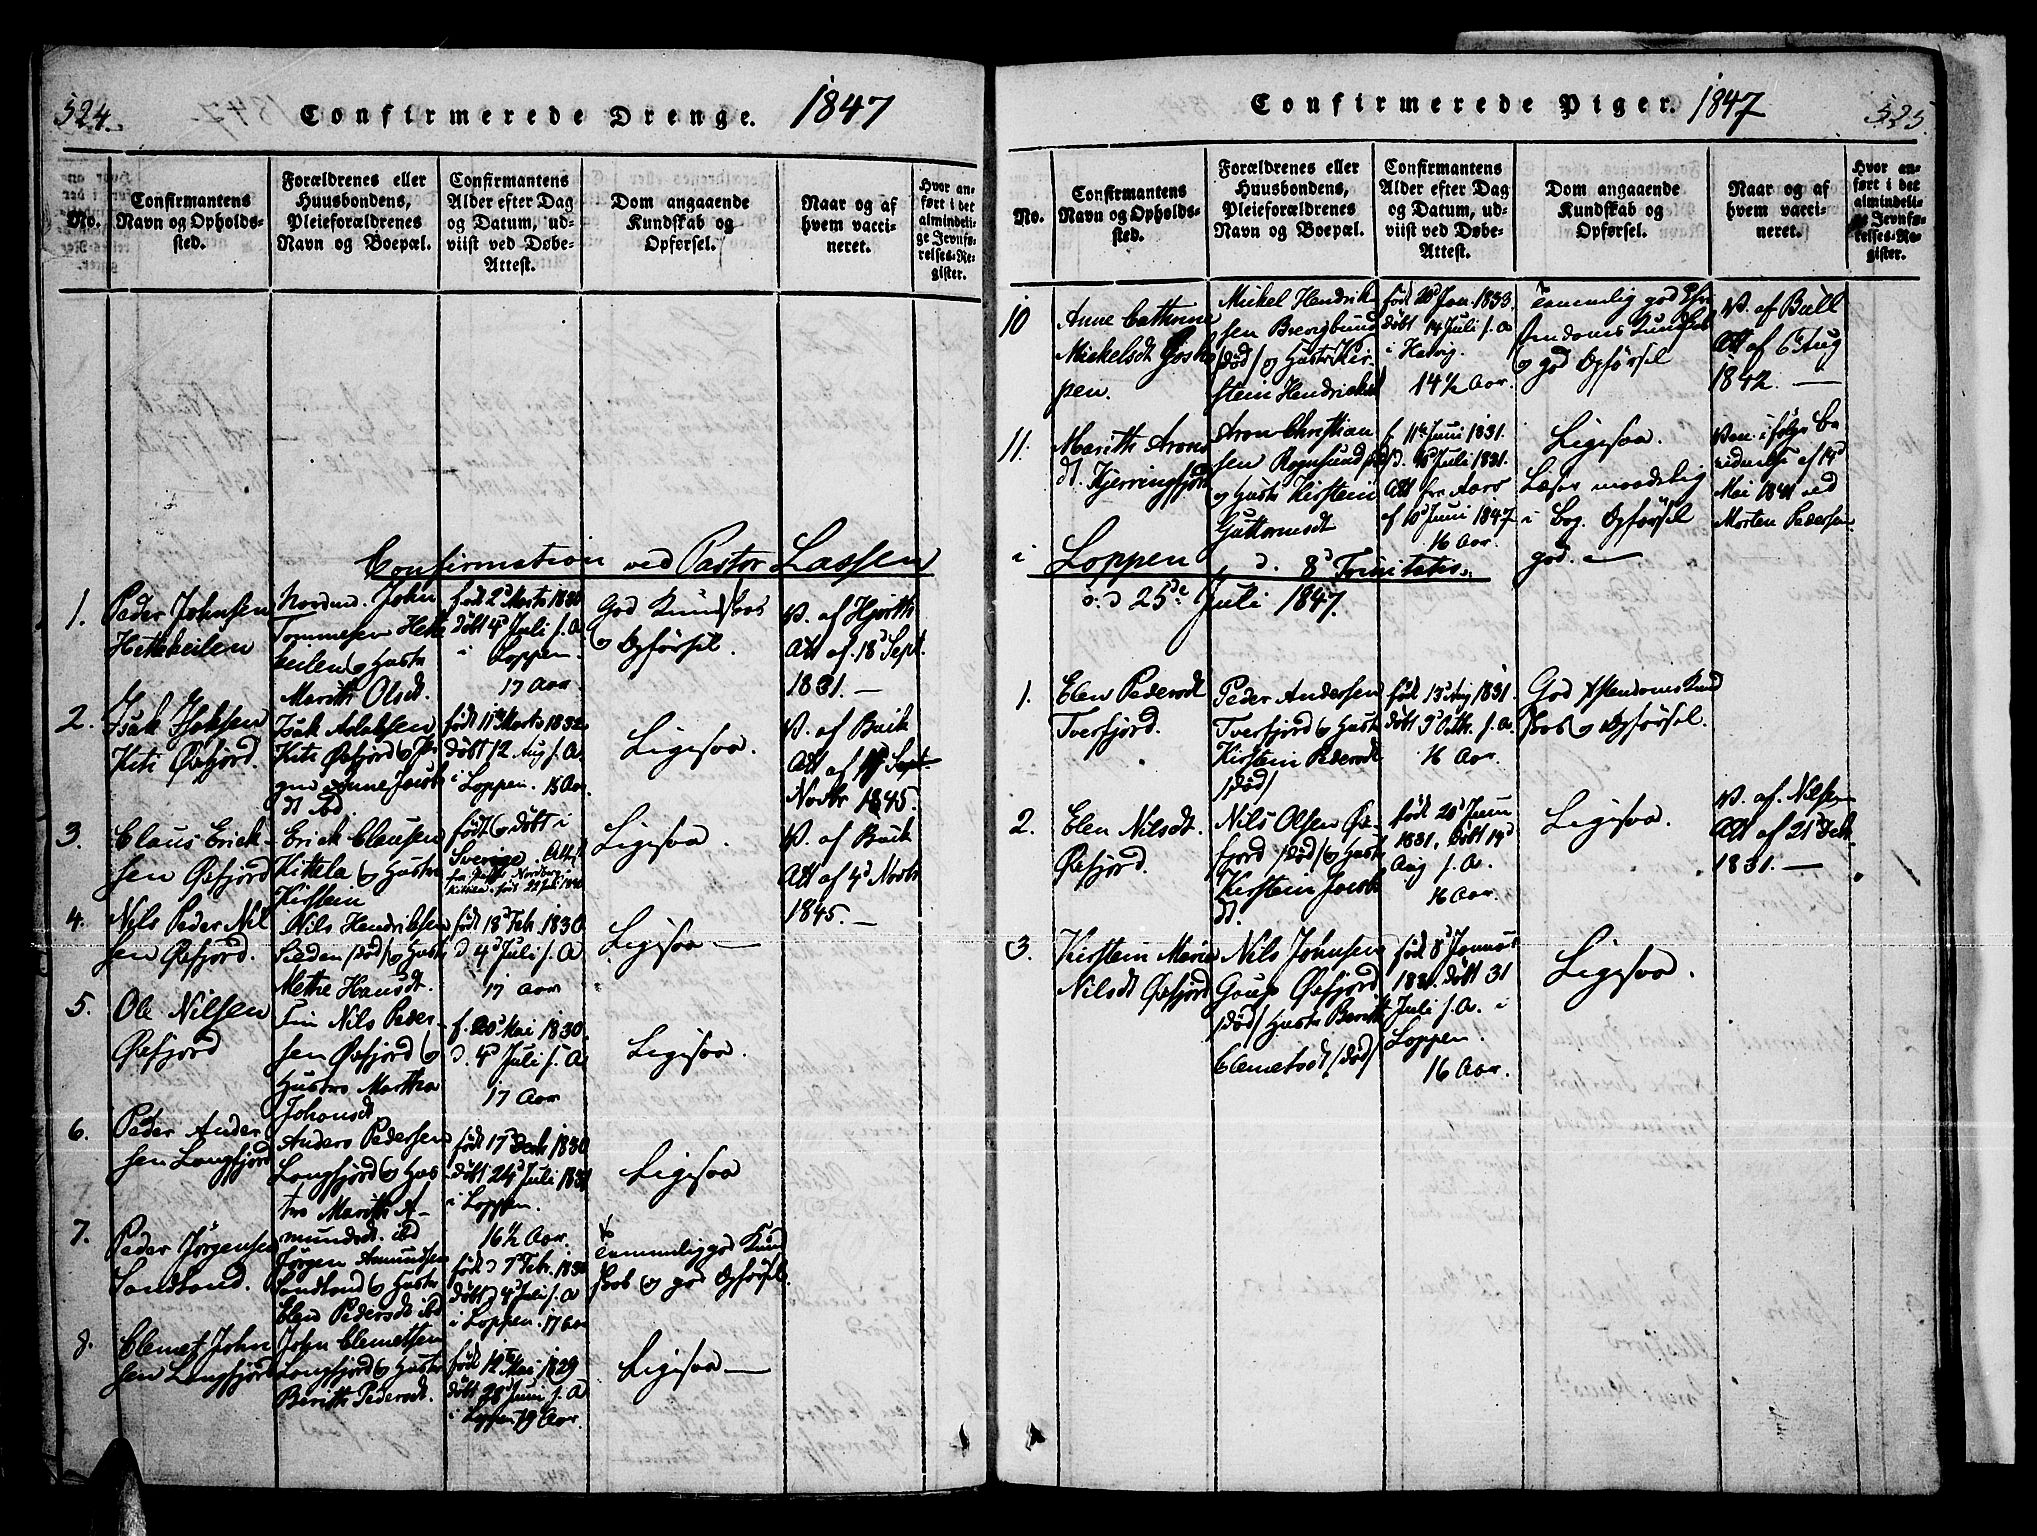 524.
Confirmerede Drenge. 1847
No.
Confirmantens
Navn og Opholds-
sted.
Forældrenes eller
Huusbondens,
Pleieforældrenes
Navn og Boepæl.
Confirmantens
Alder efter Dag
og Datum, ud-
viist ved Døbe-
Attest.
Dom angaaende
Kundskab og
Opførsel.
Naar og af
hvem vacci-
neret.
Hvor an-
ført i det
almindeli-
ge Jevnfø-
relses-Re-
gister.
Confirmation ved Pastor Lassen
1.
Peder Johnsen
Johan
Tommesen
Marith Olsdt.
født 2d Marts 1830
Døbt 4d Juli s. A
i Loppen.
17 Aar
God Kundskab
og Opførsel.
V. af Hjorth
Att af 18 Sept.
1831. —
2.
Isak Isaksen
Kiti Øxfjord.
Kiti Øxfjord og
Anne Jacobs
dt ibd.
født 11te Marts 1832
døbt 12 Aug s. A.
i Loppen. 15 Aar
Ligesaa.
V. af Buck
Novbr 1845.
3.
Claus Erick-
sen Øxfjord
Erick Clausen
Kittela og Hustro
Kirstein
født og døbt i
Sverige. Att
Ligesaa.
V. af Buck
Att af 4d Novbr
1845. —
4.
Nils Peder Nil
sen Øxfjord.
Nils Hendriksen
(død) og Hustr
Methe Hansdt.
født 18d Feb. 1830
d 4d Juli s. A
17 Aar
Ligesaa —
5.
Ole Nilsen
Øxfjord
Fin Nils Peder-
sen Øxfjord og
Hustro Martha
Johansdt
f. 20d Mai 1830
d. 4d Juli s. A
17 Aar
Ligesaa.
6.
Peder Ander
sen Langfjord
Anders Pedersen
Langfjord og Hus
tro Marith A-
mundsdt. ibd
født 17d Decb 1830
døbt 24d Juli 1831
i Loppen.
16½ Aar.
Ligesaa
7.
Peder Jørgensen
Sandland.
Jørgen Amundsen
Sandland og Hustr
Elen Pedersdt ibd
født d 7d Feb. 1830
døbt d 4d Juli s. A
i Loppen. 17 Aar
Temmelig god Kund
skab og god Opførsel.
8.
Clemet John
sen Langfjord
John Clemetsen
Langfjord og Hustr
Berith Pedersdt.
født 12te Mai 1829
døbt 28d Juni s. A
i Loppen 19 Aar
Ligesaa —
Confirmerede Piger. 1847
525.
No.
Confirmantens
Navn og Opholds-
sted.
Forældrenes eller
Huusbondens,
Pleieforældrenes
Navn og Boepæl.
Confirmantens
Alder efter Dag
og Datum, ud-
viist ved Døbe-
Attest.
Dom angaaende
Kundskab og
Opførsel.
Naar og af
hvem vacci-
neret.
Hvor an-
ført i det
almindeli-
ge Jevnfø-
relses-Re-
gister.
10
Anne Cathrine
Mickelsdt
Mickel Hendrik
sen
(død) og Hustr Kir-
stein Hendriksdt
født 20d Jan. 1833.
Døbt 14 Juli s. A
i Hasvig.
14½ Aar.
Temmelig god
Kundskab
og god Opførsel
V. af Bull
Att af 6d Aug
1842. —
11.
Marith Arons
dt. Kjerringfjord
Aron Christian
sen Rognsund
og Hustr Kirstein
Guttormsdt
f. 11te Juni 1831.
Att fra Aarø
af 10d Juni 1847
16 Aar.
Ligesaa.
Læser maadelig
i Bog. Opførsel
god. —
Vacc. i følge
Mai 1841 ved
Morten Pedersen.
i Loppen d. 8d Trinitatis.
o: d 25de Juli 1847.
1.
Elen Pedersdt
Tverfjord.
Peder Andersen
Tverfjord og Hustr
Kirstein Pedersdt
(død)
født 13d Aug 1831.
16 Aar.
God
og Opførsel.
2.
Elen Nilsdt.
Øxfjord.
Nils Olsen Øx-
fjord (død) og Hustr
Kirstein Jacobs
dt.
født 20d Juni
1831. Døbt 14d
Aug s. A.
16 Aar.
Ligesaa.
V. af. Nilsen
1831. —
3.
Kirstein Marie
Nilsdt Øxfjord
Nils Johnsen
Øxfjord
(død) Hustr Berith
Clemetsdt (død)
født 8d Januar
1831. Døbt 31
Juli s. A. i
Loppen.
16 Aar.
Ligesaa.